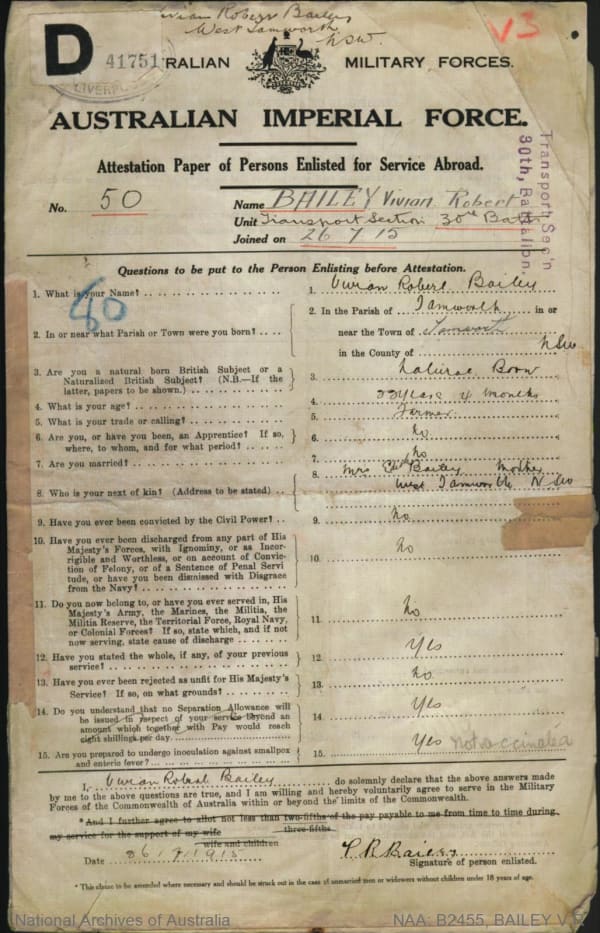 Vivian Robert Bailey
West Tamworth
NSW.
V3
D 41751
LIVERPOOL
RALIAN MILITARY FORCES.
AUSTRALIAN IMPERIAL FORCE.
Transport Sec'n
30th, Battalion.
Attestation Paper of Persons Enlisted for Service Abroad.
No. 50 Name BAILEY Vivian Robert
Unit Transport Section 30th Battn
Joined on 26 7 15
Questions to be put to the Person Enlisting before Attestation.
1. What is your Name? 1. Vivian Robert Bailey
2. In or near what Parish or Town were you born? 2. In the Parish of Tamworth in or
near the Town of Tamworth
in the County of NSW
3. Are you a natural born British Subject or a
Naturalized British Subject? (N.B.—If the
latter, papers to be shown.) 3. Natural Born
4. What is your age? 4. years 4 months
5. What is your trade or calling? 5. Farmer
6. Are you, or have you been, an Apprentice? If so,
where, to whom, and for what period? 6. No
7. Are you married? 7. No
8. Who is your next of kin? (Address to be stated) 8. Mrs Bailey Mother
West Tamworth N SW
9. Have you ever been convicted by the Civil Power? 9. No
10. Have you ever been discharged from any part of His
Majesty's Forces, with Ignominy, or as Incor-
rigible and Worthless, or on account of Convic-
tion of Felony, or of a Sentence of Penal Servi
tude, or have you been dismissed with Disgrace
from the Navy? 10. No
11. Do you now belong to, or have you ever served in, His
Majesty's Army, the Marines, the Militia, the
Militia Reserve, the Territorial Force, Royal Navy,
or Colonial Forces? If so, state which, and if not
now serving, state cause of discharge 11. No
12. Have you stated the whole, if any, of your previous
service? 12. Yes
13. Have you ever been rejected as unfit for His Majesty's
Service? If so, on what grounds? 13. No
14. Do you understand that no Separation Allowance will
be issued in respect of your service beyond an
amount which together with Pay would reach
eight shillings per day. 14. Yes
15. Are you prepared to undergo inoculation against smallpox
and enteric fever? 15. Yes not vaccinated
I, Vivian Robert Bailey do solemnly declare that the above answers made
by me to the above questions are true, and I am willing and hereby voluntarily agree to serve in the Military
Forces of the Commonwealth of Australia within or beyond the limits of the Commonwealth.
*And I further agree to allot not less than two-fifths of the pay payable to me from time to time during
three-fifths
my service for the support of my wife
wife and children
Date 26/7/1915 V.R. Bailey
Signature of person enlisted.
* This clause to be amended where necessary and should be struck out in the case of unmarried men or widowers without children under 18 years of age.
National Archives of Australia NAA: B2455, BAILEY V R